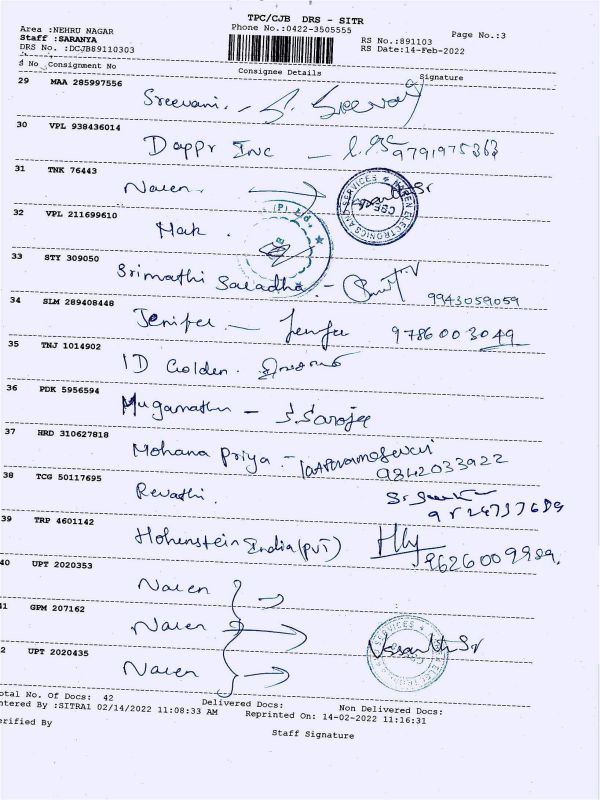 TPC/CJB DRS - SITR
Area :NEHRU NAGAR
Phone No.:0422-3505555
Page No.:3
Staff :SARANYA
RS No.:891103
DRS No. :DCJB89110303
RS Date:14-Feb-2022
No Consignment No
Consignee Details
Signature
29 MAA 285997556
Sreevani.
30 VPL 938436014
Dappr Inc 9791975363
31 TNK 76443
Naren.
SERVICES NAREN ELECTRONICS AND
CBE
32 VPL 211699610
Mak.
(P) Ltd
33 STY 309050
Srimathi Saradha -
9943059059
34 SLM 289408448
Jenifer - 9786003049
35 TNJ 1014902
ID Golden.
36 PDK 5956594
- S. Saroja
37 HRD 310627818
Mohana Priya -
9842033922
38 TCG 50117695
Revathi.
39 TRP 4601142
Hohenstein India (PVT)
9626009989.
40 UPT 2020353
Naren
41 GPM 207162
Naren
2 UPT 2020435
SERVICES
Naren
otal No. Of Docs: 42
Delivered Docs:
Non Delivered Docs:
ntered By :SITRA1 02/14/2022 11:08:33 AM
Reprinted On: 14-02-2022 11:16:31
erified By
Staff Signature